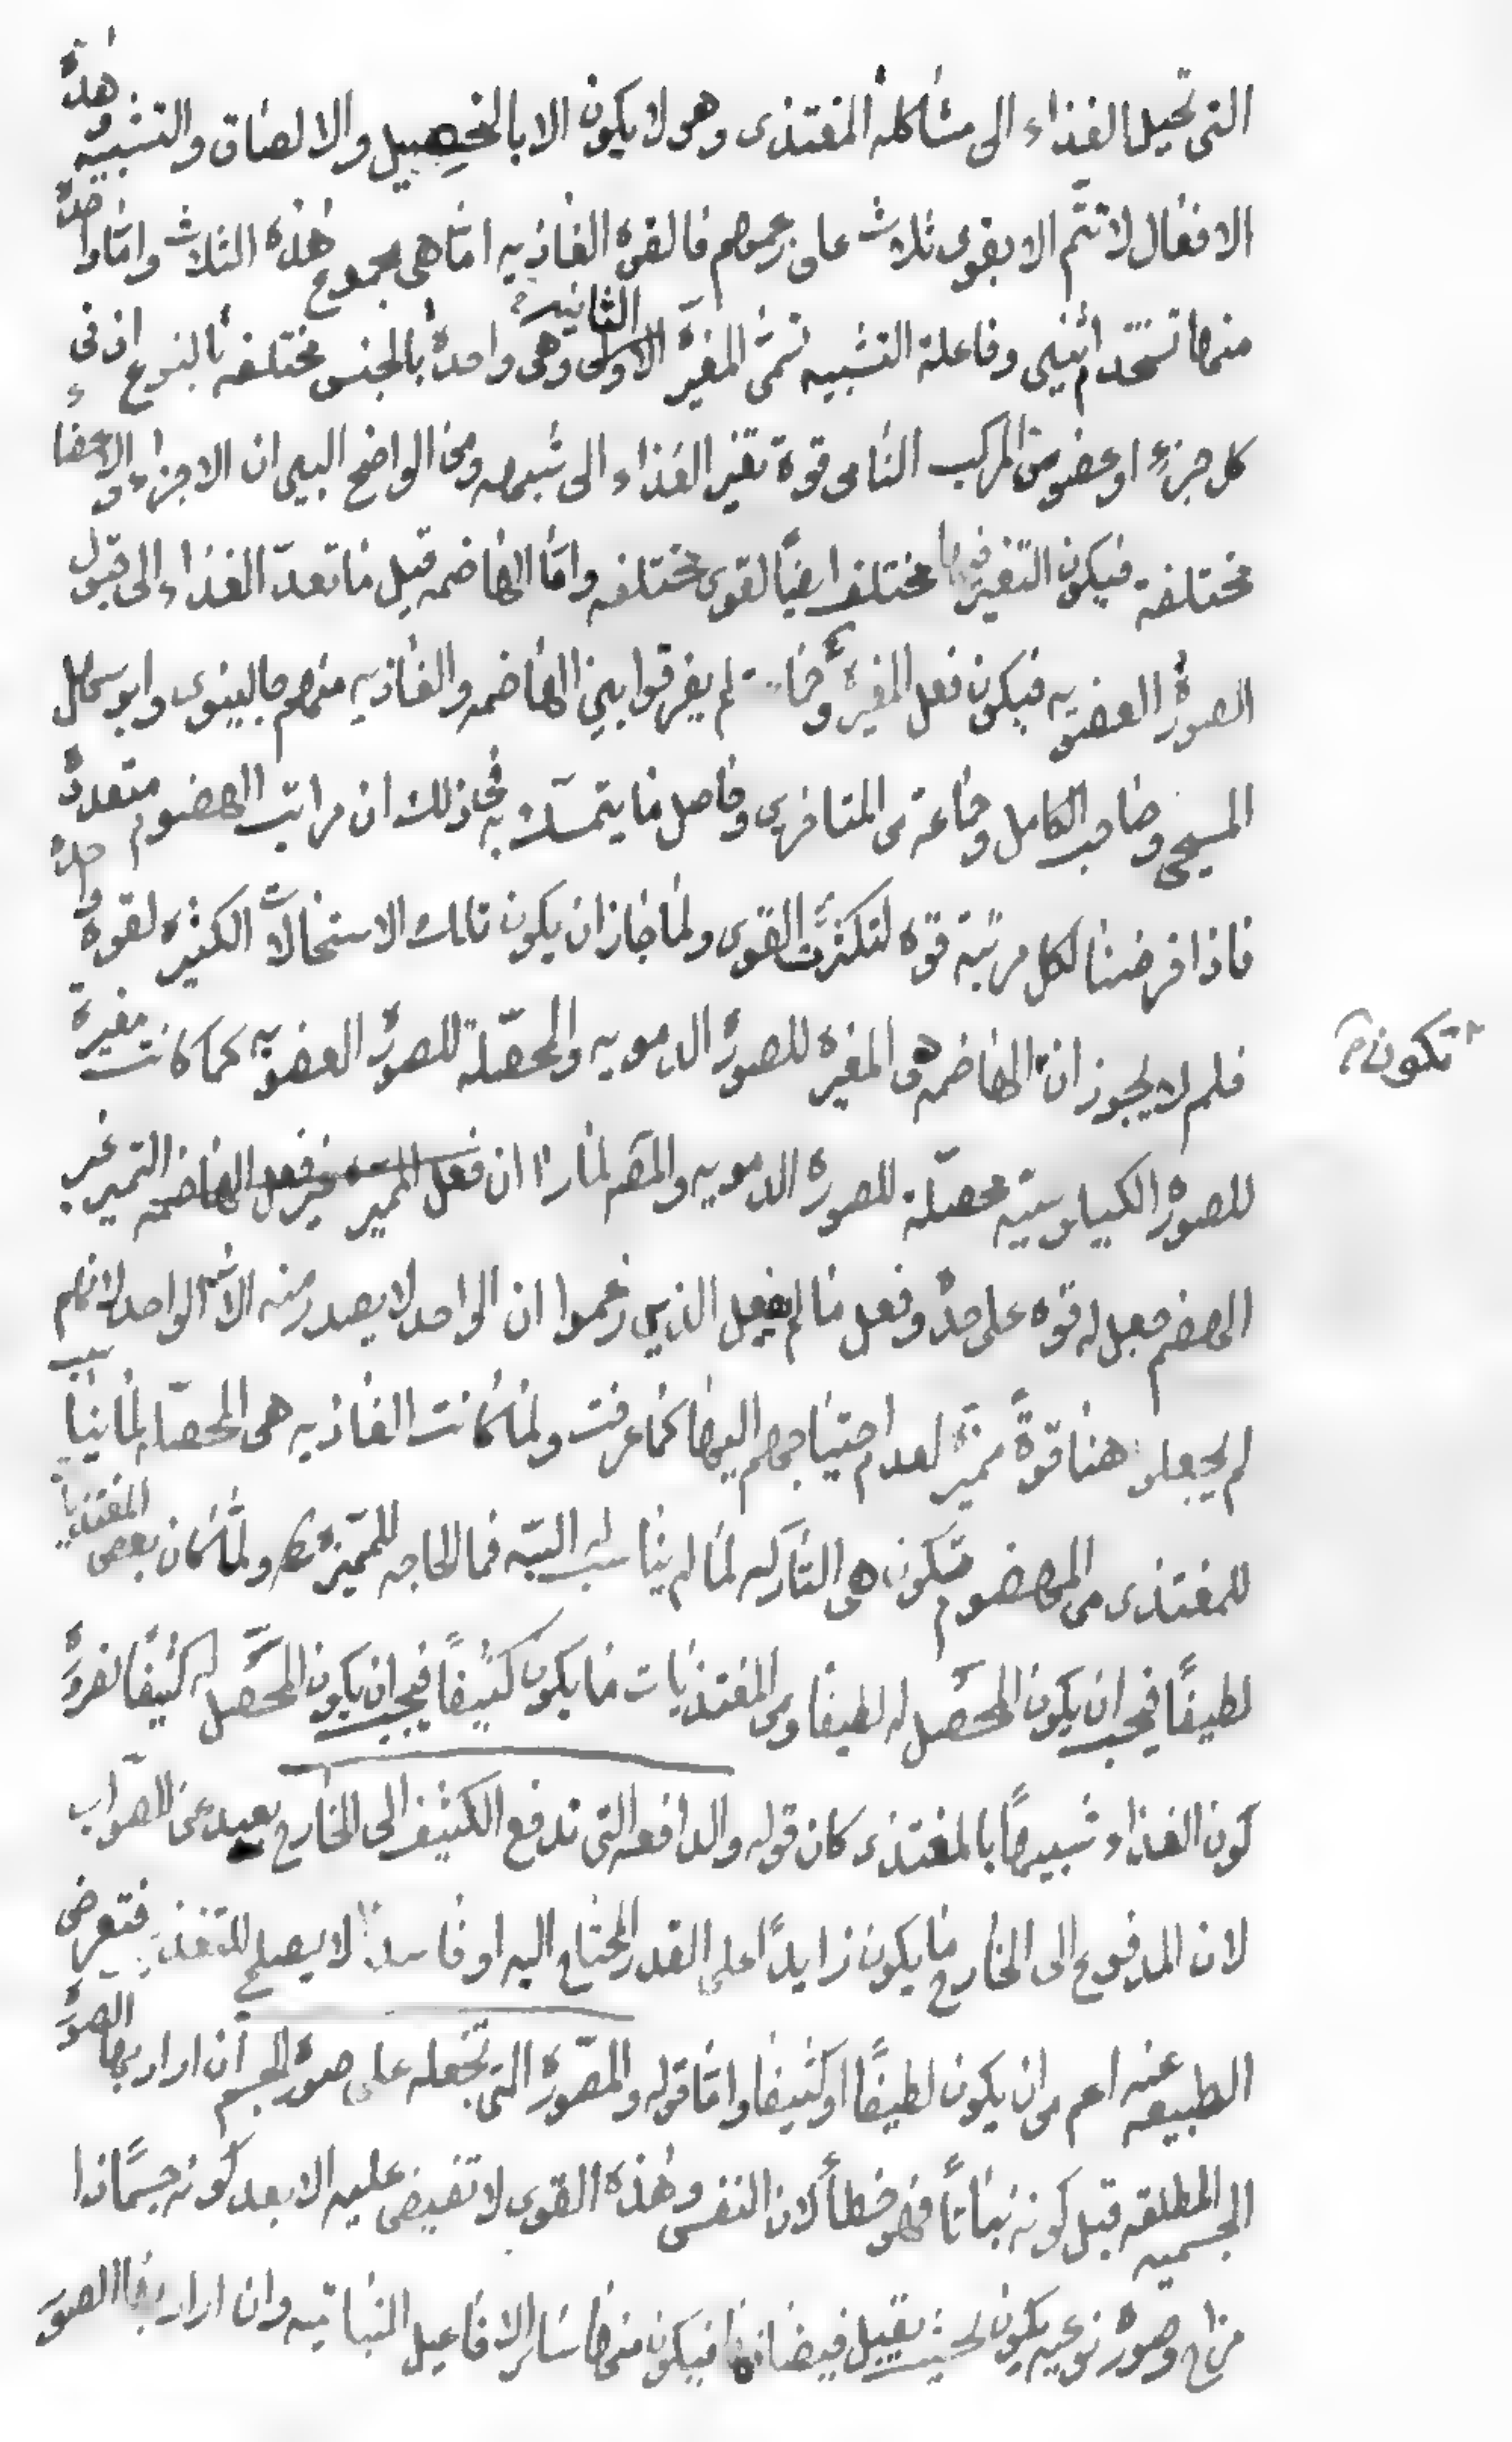 التى تحيل الغذاء الى مشاكلة المغتذى وهو لا يكون الا بالتحصيل والالصاق والتشبيه وهذه
الافعال لا تتم الا بقوى ثلاث على زعمهم فالقوة الغاذيه اما هى مجموع هذه الثلاث واما واحدة
منها تستخدم اثنين وفاعلة التشبيه تسمى المغيرة الاولى الثانية وهى واحدة بالجنس مختلفه بالنوع اذ فى
كل جزء او عضو من المركب النامى قوة تغير الغذاء الى شبيهه ومن الواضح البين ان الاجزاء والاعضاء
مختلفة فيكون التغير فيها مختلف ايضا لقوى مختلفه واما الهاضمه قيل ما تعد الغذاء الى قبول
الصورة العضويه فيكون فعل المغيرة لم يفرقوا بين الهاضمه والغاذيه منهم جالينوس وابو سهل
المسيحى وصاحب الكامل وجماعة من المتاخرين وحاصل ما يتمسك به فى ذلك ان مراتب الهضوم متعددة
فاذا فرضنا لكل مرتبة قوه لتكثرت القوى ولما جاز ان يكون تلك الاستحالات الكثيره لقوة واحدة
فلم لا يجوز ان الهاضمه هى المغيره للصورة الدمويه والمحصلة للصورة العضويه كما كانت مغيرة
تكون
للصورة الكيلوسيه محصلة للصورة الدمويه والمص لما را ان فعل المميز غير فعل الهاضمه التميز غير
الهضم جعل له قوه على حدة وفعل ما لم يفعل الذين زعموا ان الواحد لا يصدر منه الا الواحد لانهم
لم يجعلوا هنا قوة مميزة لعدم احتياجهم اليها كما عرفت ولما كانت الغاذيه هى المحصله لما يناسب
للمغتذى من المهضوم فتكون هى التاركه لما لم يناسب له البته فما الحاجه للمميزة ولما كان بعض المغتذيات
لطيفا فيجب ان يكون المحصل له لطيفا ومن المغتذيات ما يكون كثيفا فيجب ان يكون المحصل له كثيفا لضرورة
كون الغذاء شبيها بالمغتذى كان قوله والدافعه التى تدفع الكثيف الى الخارج بعيد عن الصواب
لان المدفوع الى الخارج ما يكون زايدا على القدر المحتاج اليه او فاسدا لا يصلح للتغذى فتعرض
الطبيعه عنه اعم من ان يكون لطيفا او كثيفا واما قوله والمصورة التى تجعله على صورة الجسم ان اراد بها الصورة
الجسميه المطلقه قبل كونه نباتا فهو خطأ لان النفس وهذه القوى لا تفيض عليه الا بعد كونه جسما ذا
مزاج وصورة نوعيه يكون بحيث يقبل فيضانها فيكون منها سائر الافاعيل النباتيه وان اراد بها الصور